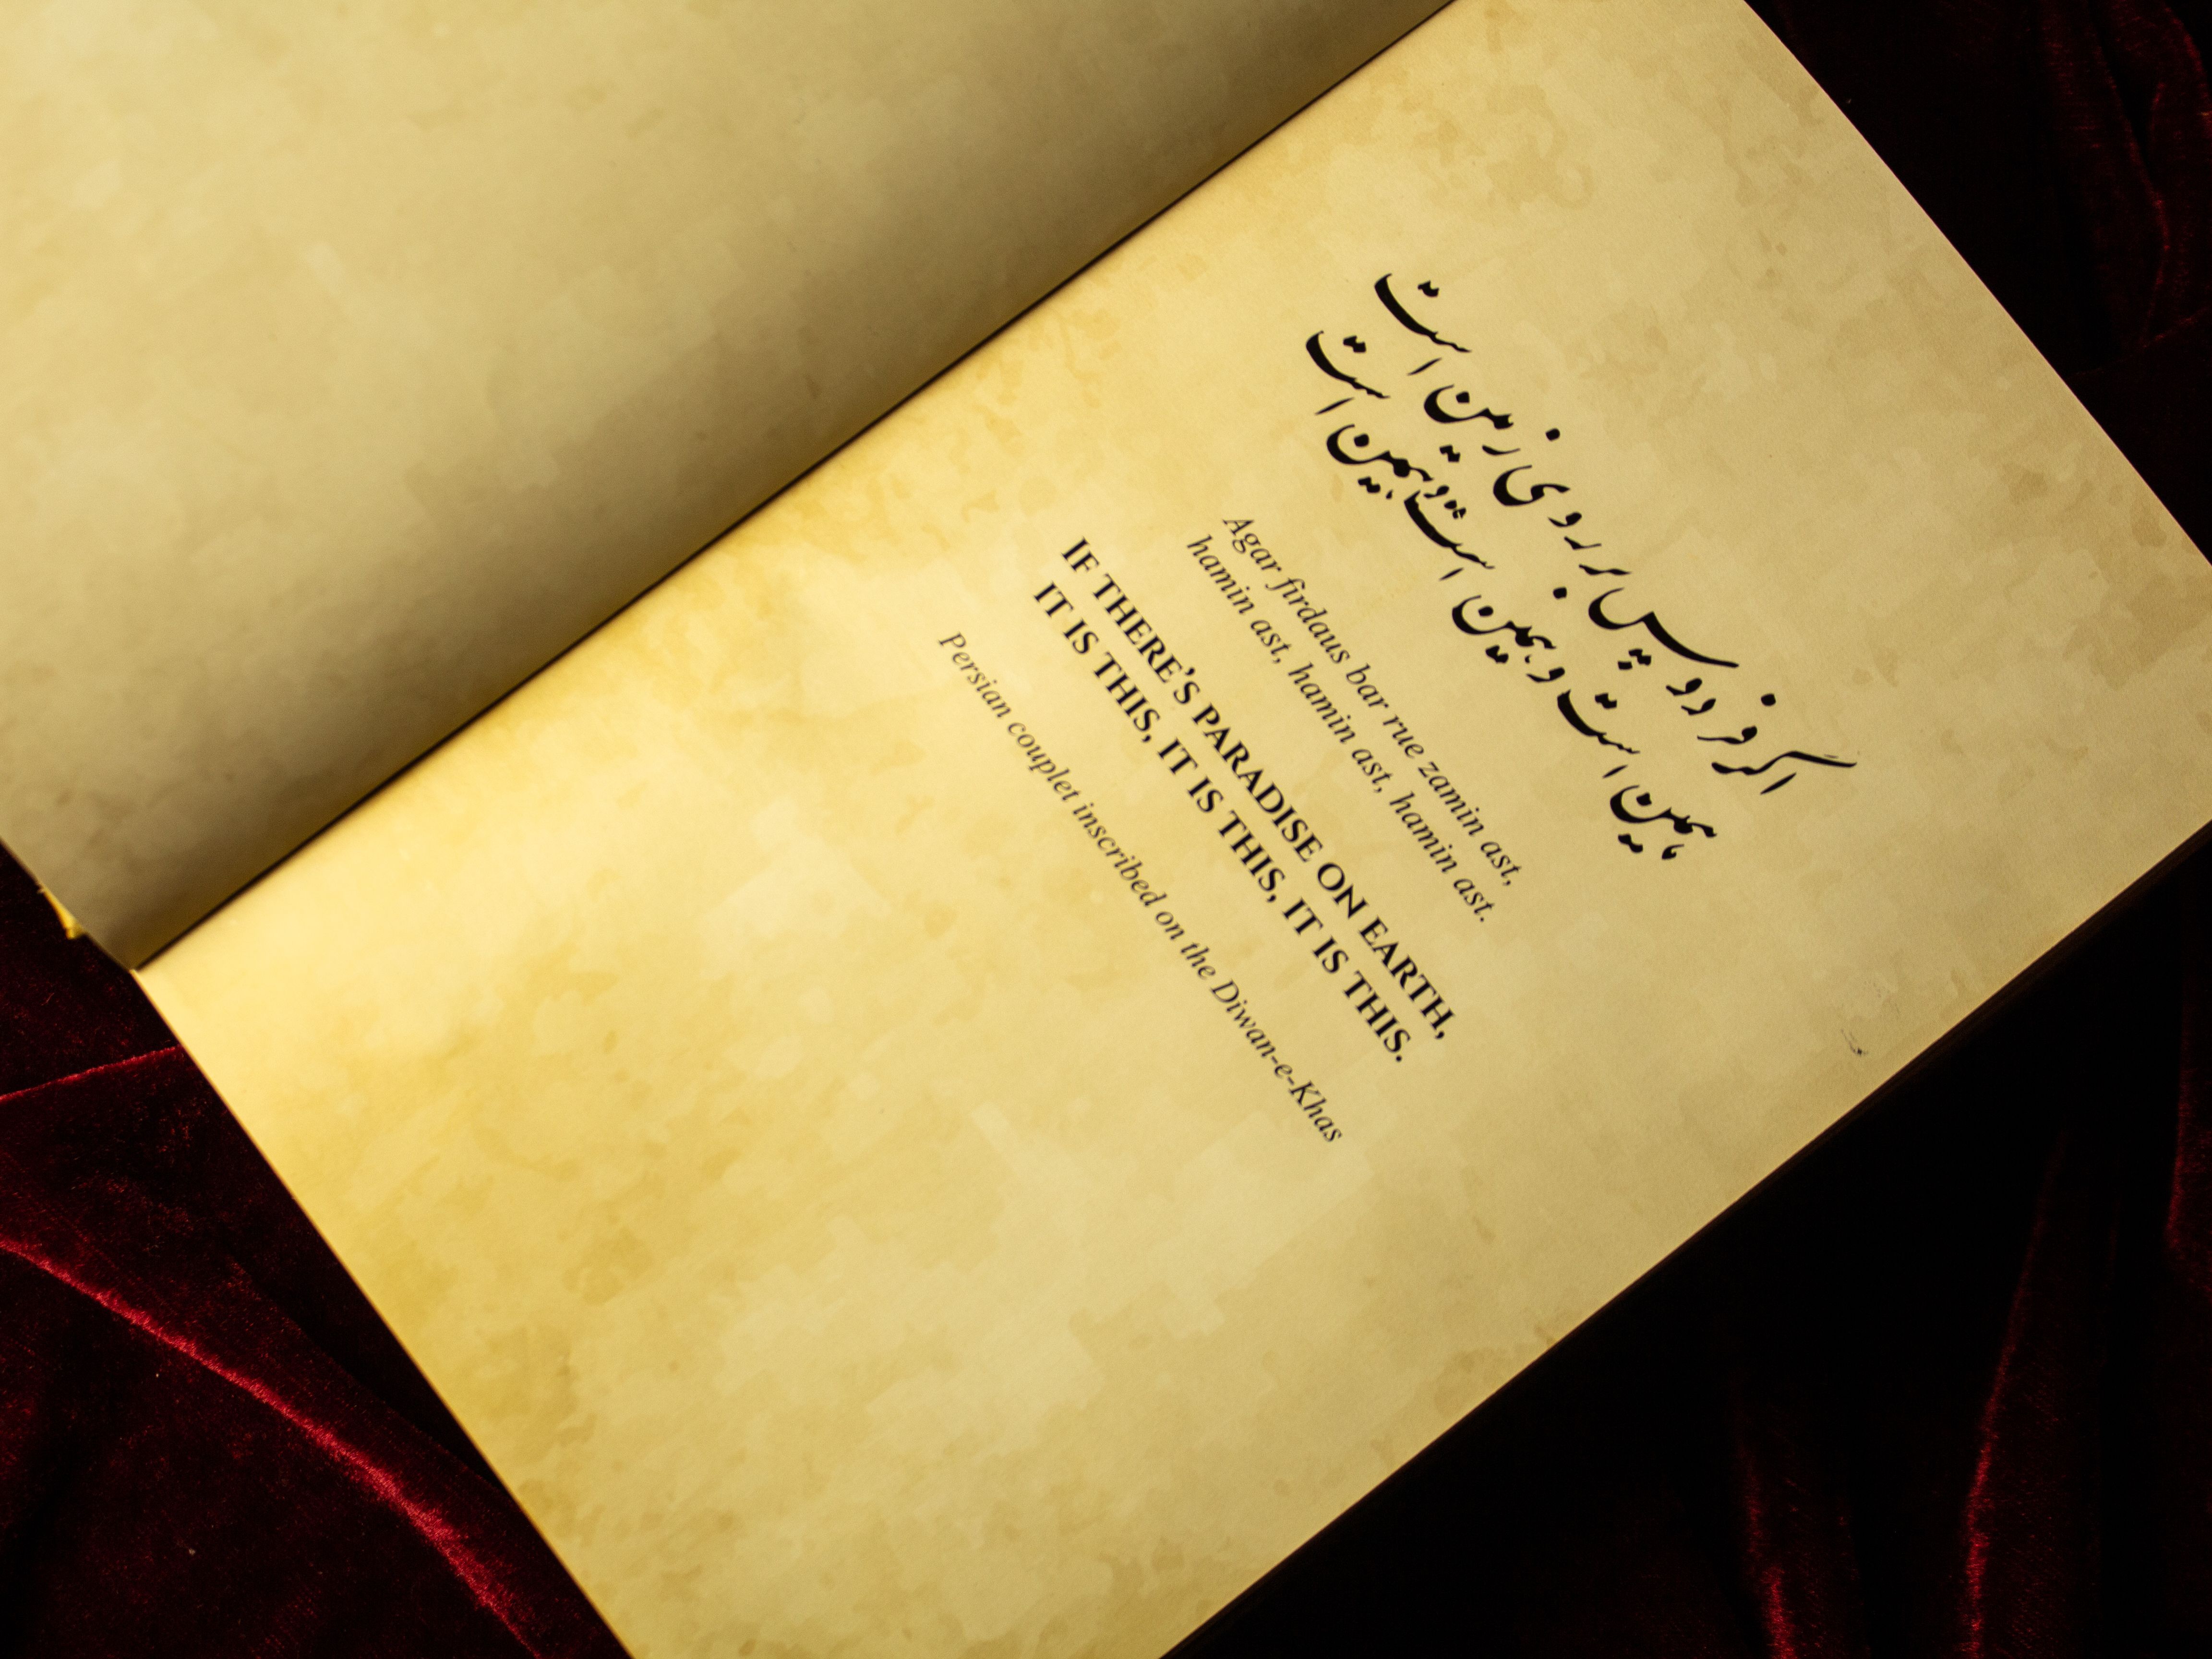 اگر فردوس بر روی زمین است
همین است و همین است و همین است
Agar firdaus bar rue zamin ast,
hamin ast, hamin ast, hamin ast.
IF THERE'S PARADISE ON EARTH,
IT IS THIS, IT IS THIS, IT IS THIS.
Persian couplet inscribed on the Diwan-e-Khas